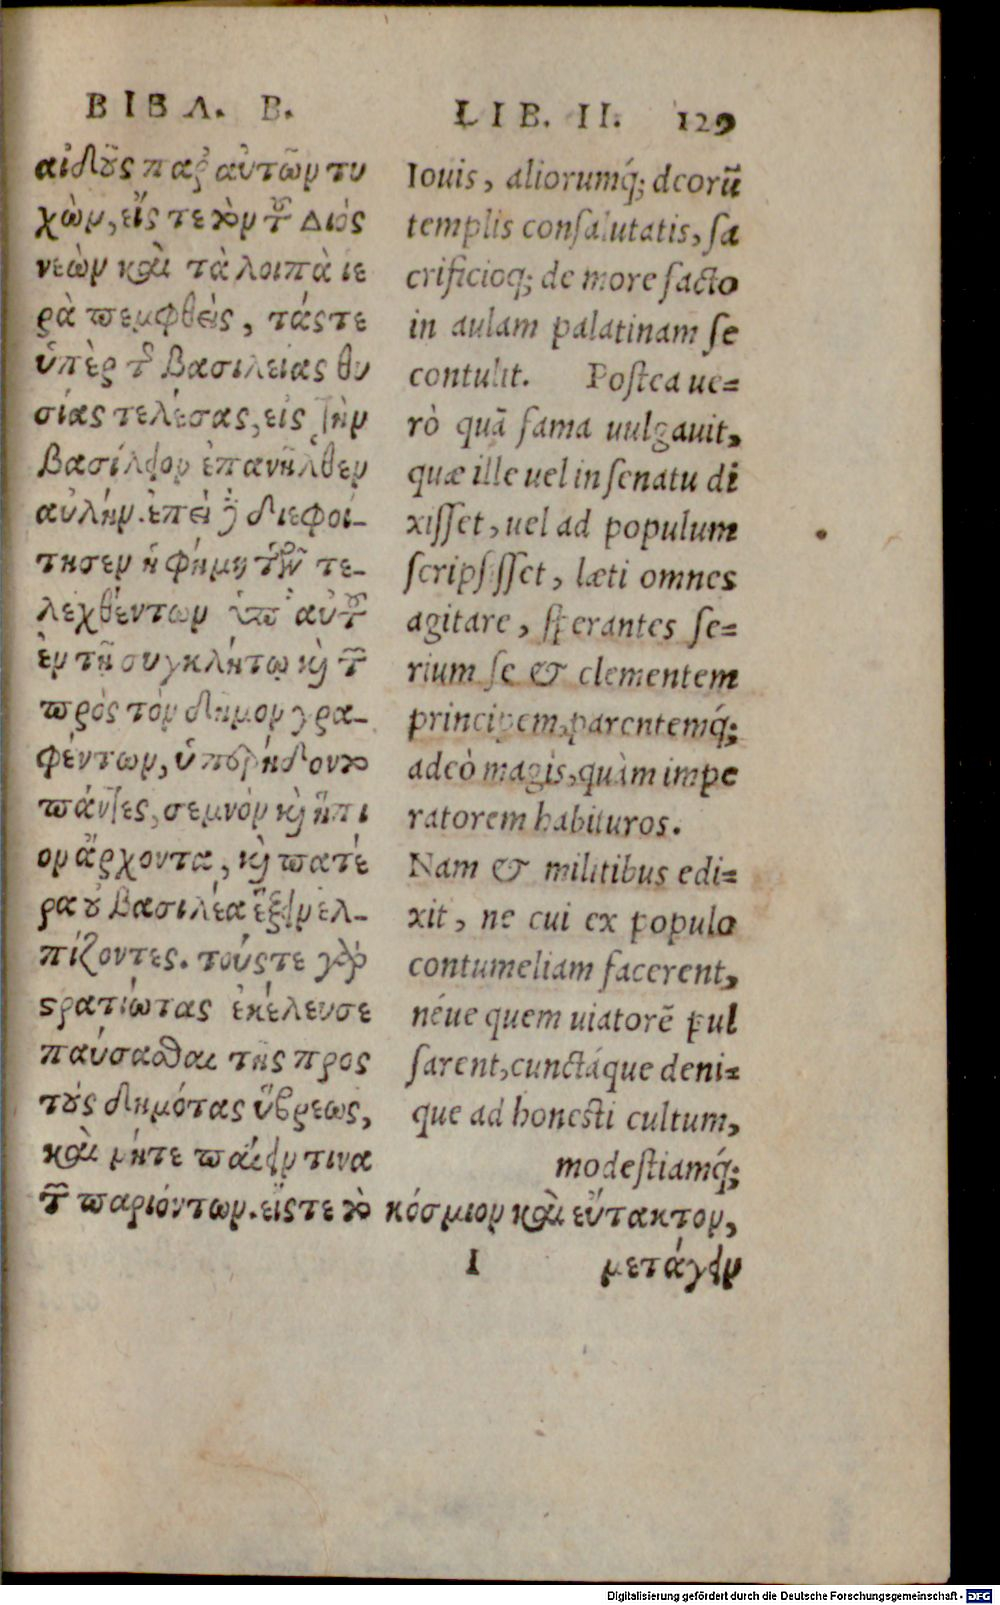 ΒΙΒΛ. Β.
αἰδοῦς παρ' αὐτῶν τυ
χὼν, εἴς τε τὸν τοῦ Διός
νεὼν καὶ τὰ λοιπὰ ιε
ρὰ πεμφθεὶς, τάς τε
ὑπὲρ τῆς βασιλείας θυ
σίας τελέσας, εἰς τὴν
βασίλειον ἐπανῆλθεν
αὐλήν. ἐπεὶ δὲ διεφοί-
τησεν ἡ φήμη τῶν τε-
λεχθέντων ὑπ' αὐτοῦ
ἐν τῇ συγκλήτῳ καὶ τῶν
πρὸς τὸν δῆμον γρα-
φέντων, ὑπερήδοντο
πάντες, σεμνὸν καὶ ἤπι
ον ἄρχοντα, καὶ πατέ
ρα οὐ βασιλέα ἕξειν ἐλ-
πίζοντες. τούς τε γὰρ
στρατιώτας ἐκέλευσε
παύσασθαι τῆς προς
τοὺς δημότας ὕβρεως,
καὶ μήτε παίειν τινα
τῶν παριόντων. εἴς τε τὸ κόσμιον καὶ εὔτακτον,
μετάγειν
LIB. II. 129
Iouis, aliorumq́; deorũ
templis consalutatis, sa
crificioq; de more facto
in aulam palatinam se
contulit. Postea ue=
rò quã fama uulgauit,
quæ ille uel in senatu di
xisset, uel ad populum
scripsisset, læti omnes
agitare, sperantes se=
rium se & clementem
principem, parentemq́;
adeò magis, quàm impe
ratorem habituros.
Nam & militibus edi=
xit, ne cui ex populo
contumeliam facerent,
néue quem uiatorẽ pul
sarent, cunctáque deni=
que ad honesti cultum,
modestiamq́;
I
Digitalisierung gefördert durch die Deutsche Forschungsgemeinschaft - DFG